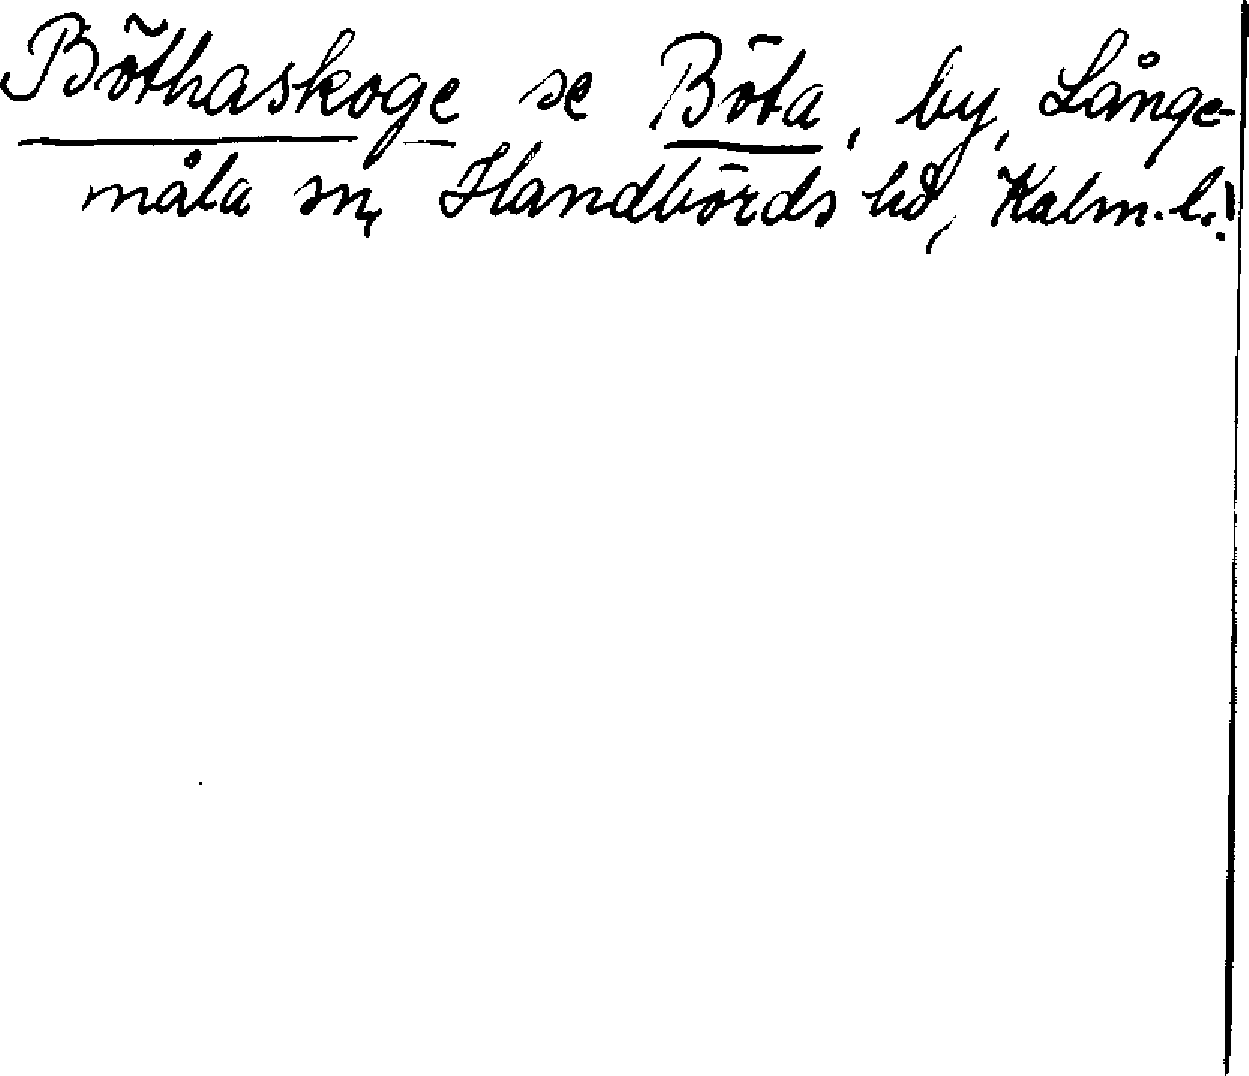 Böthaskoge se Böta, by, Långe-
måla sn, Handbörds hd, Kalm. l.!